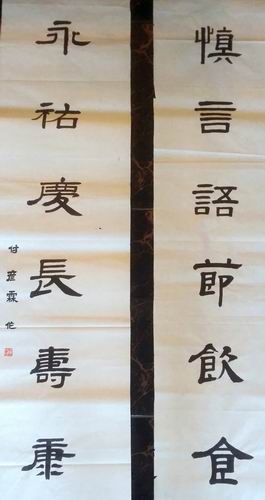 慎言語節飲食
永祐慶長壽康